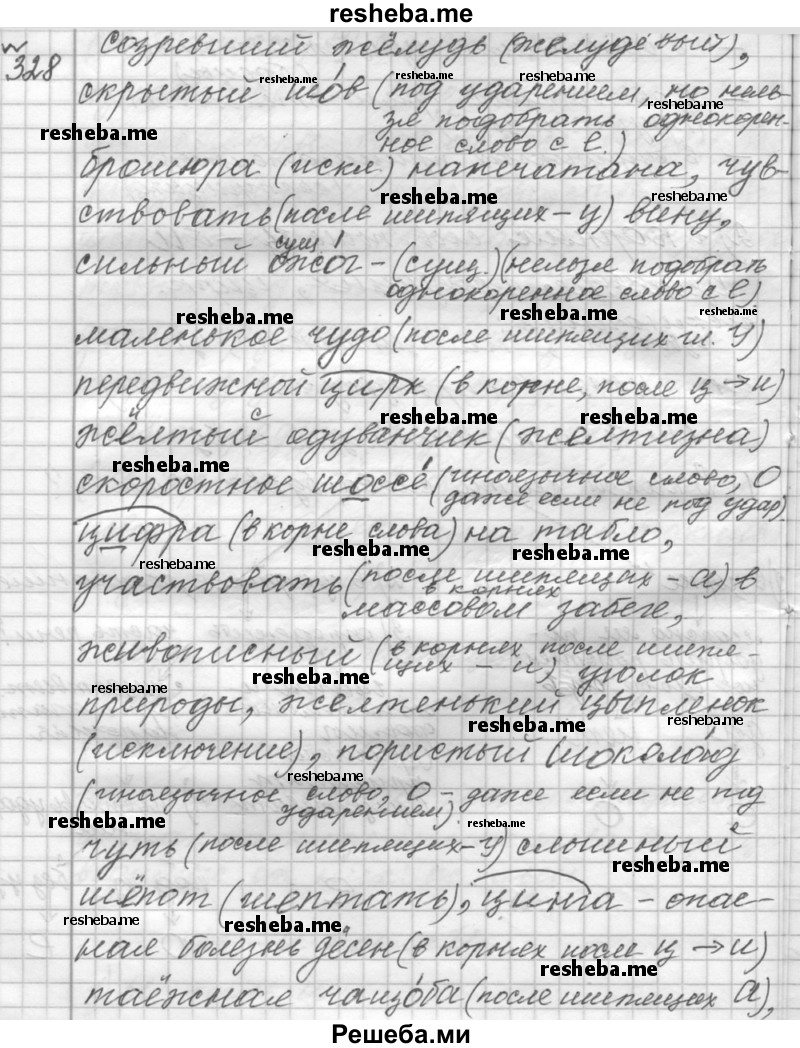 resheba.me
№ 328 созревший жёлудь (желудёвый),
скрытый шов (под ударением, но нель-
зя подобрать однокорен-
ное слово с е.)
брошюра (искл.) напечатана, чув-
ствовать (после шипящих - у) вину,
сильный ожог - (сущ.) (нельзя подобрать
однокоренное слово с е)
маленькое чудо (после шипящих ш. У)
передвижной цирк (в корне, после ц → и)
жёлтый одуванчик (желтизна)
скоростное шоссе (иноязычное слово, О
даже если не под удар)
цифра (в корне слова) на табло,
участвовать (после шипящих - а) в
в корнях
массовом забеге,
живописный (в корнях после шипя-
щих - и) уголок
природы, желтенький цыпленок
(исключение), пористый шоколад
(иноязычное слово, О - даже если не под
ударением).
чуть (после шипящих - У) слышный
шёпот (шептать), цинга - опас-
ная болезнь дёсен (в корнях после ц → и)
таёжная чащоба (после шипящих А),
Решеба.ми